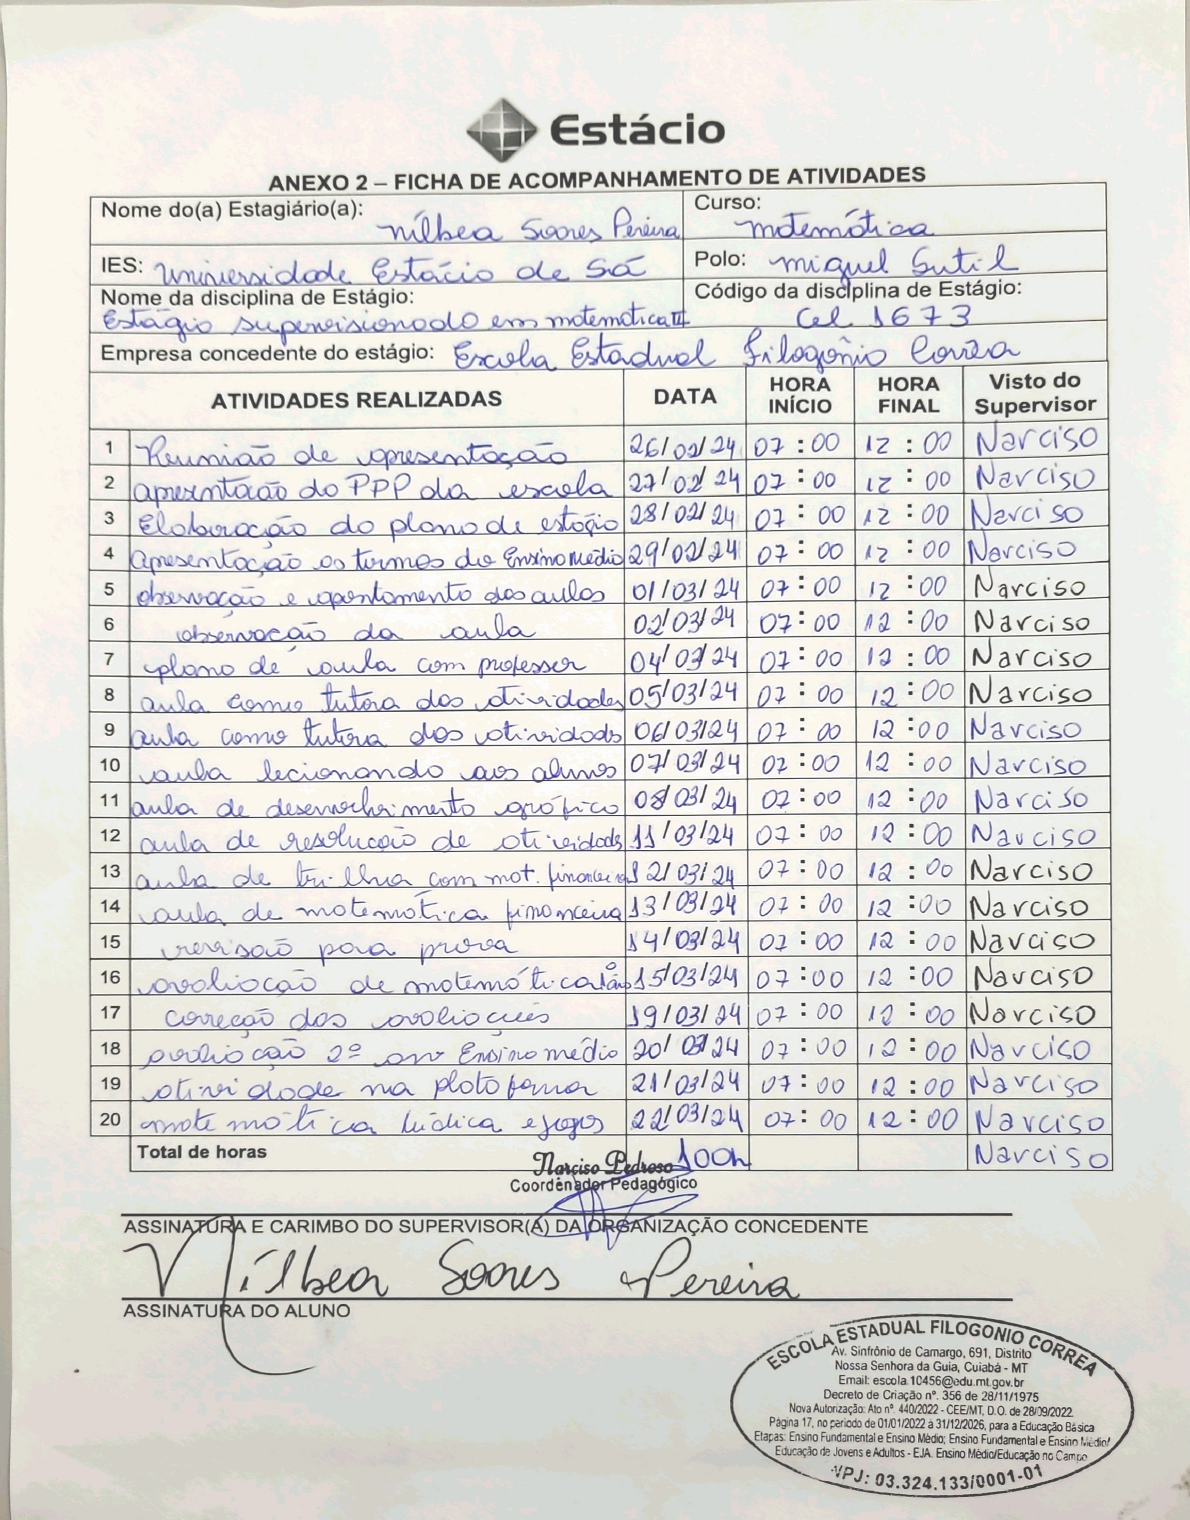 Estácio
ANEXO 2 – FICHA DE ACOMPANHAMENTO DE ATIVIDADES
Nome do(a) Estagiário(a): Nílbea Soares Pereira
Curso: matemática
IES: Universidade Estácio de Sá
Polo: Miguel Sutil
Nome da disciplina de Estágio: Estágio supervisionado em matemática II
Código da disciplina de Estágio: Cel 1673
Empresa concedente do estágio: Escola Estadual Filogônio Corrêa
ATIVIDADES REALIZADAS DATA HORA INÍCIO HORA FINAL Visto do Supervisor
1 Reunião de apresentação 26/02/24 07:00 12:00 Narciso
2 apresentação do PPP da escola 27/02/24 07:00 12:00 Narciso
3 Elaboração do plano de estágio 28/02/24 07:00 12:00 Narciso
4 Apresentação as turmas do Ensino Médio 29/02/24 07:00 12:00 Narciso
5 observação e apontamento das aulas 01/03/24 07:00 12:00 Narciso
6 observação da aula 02/03/24 07:00 12:00 Narciso
7 plano de aula com professor 04/03/24 07:00 12:00 Narciso
8 aula como tutora das atividades 05/03/24 07:00 12:00 Narciso
9 aula como tutora das atividades 06/03/24 07:00 12:00 Narciso
10 aula lecionando aos alunos 07/03/24 07:00 12:00 Narciso
11 aula de desenvolvimento gráfico 08/03/24 07:00 12:00 Narciso
12 aula de resolução de atividades 11/03/24 07:00 12:00 Narciso
13 aula de trilha com mat. financeira 12/03/24 07:00 12:00 Narciso
14 aula de matemática financeira 13/03/24 07:00 12:00 Narciso
15 revisão para prova 14/03/24 07:00 12:00 Narciso
16 avaliação de matemática 1º ano 15/03/24 07:00 12:00 Narciso
17 correção das avaliações 19/03/24 07:00 12:00 Narciso
18 avaliação 2º ano Ensino médio 20/03/24 07:00 12:00 Narciso
19 atividade na plataforma 21/03/24 07:00 12:00 Narciso
20 matemática lúdica e jogos 22/03/24 07:00 12:00 Narciso
Total de horas 100h Narciso
Narciso Pedroso
Coordenador Pedagógico
ASSINATURA E CARIMBO DO SUPERVISOR(A) DA ORGANIZAÇÃO CONCEDENTE
Nílbea Soares Pereira
ASSINATURA DO ALUNO
ESCOLA ESTADUAL FILOGONIO CORREA
Av. Sinfrônio de Camargo, 691, Distrito
Nossa Senhora da Guia, Cuiabá - MT
Email: escola.10456@edu.mt.gov.br
Decreto de Criação nº. 356 de 28/11/1975
Nova Autorização: Ato nº. 440/2022 - CEE/MT, D.O. de 28/09/2022
Página 17, no periodo de 01/01/2022 à 31/12/2026, para a Educação Básica
Etapas: Ensino Fundamental e Ensino Médio; Ensino Fundamental e Ensino Médio/
Educação de Jovens e Adultos - EJA. Ensino Médio/Educação no Campo
NPJ: 03.324.133/0001-01